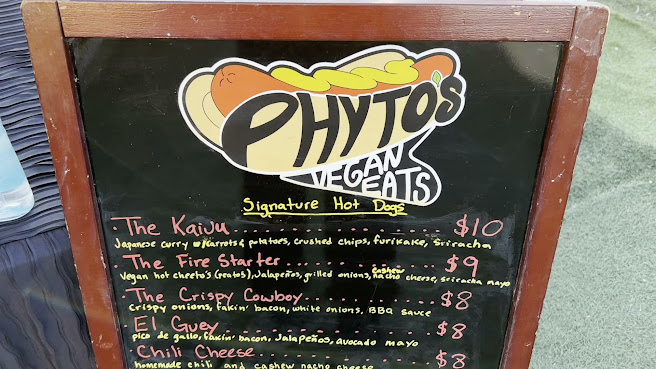 PHYTO'S
VEGAN
EATS
Signature Hot Dogs
· The Kaiju .................... $10
Japanese curry w/carrots & potatoes, crushed chips, furikake, sriracha
· The Fire Starter ............... $9
Vegan hot cheeto's (peatos), Jalapeños, grilled onions, cashew nacho cheese, sriracha mayo
· The Crispy Cowboy ............. $8
Crispy onions, fakin' bacon, white onions, BBQ sauce
· El Guey .................... $8
pico de gallo, fakin' bacon, Jalapeños, avocado mayo
· Chili Cheese ................. $8
homemade chili and cashew nacho cheese